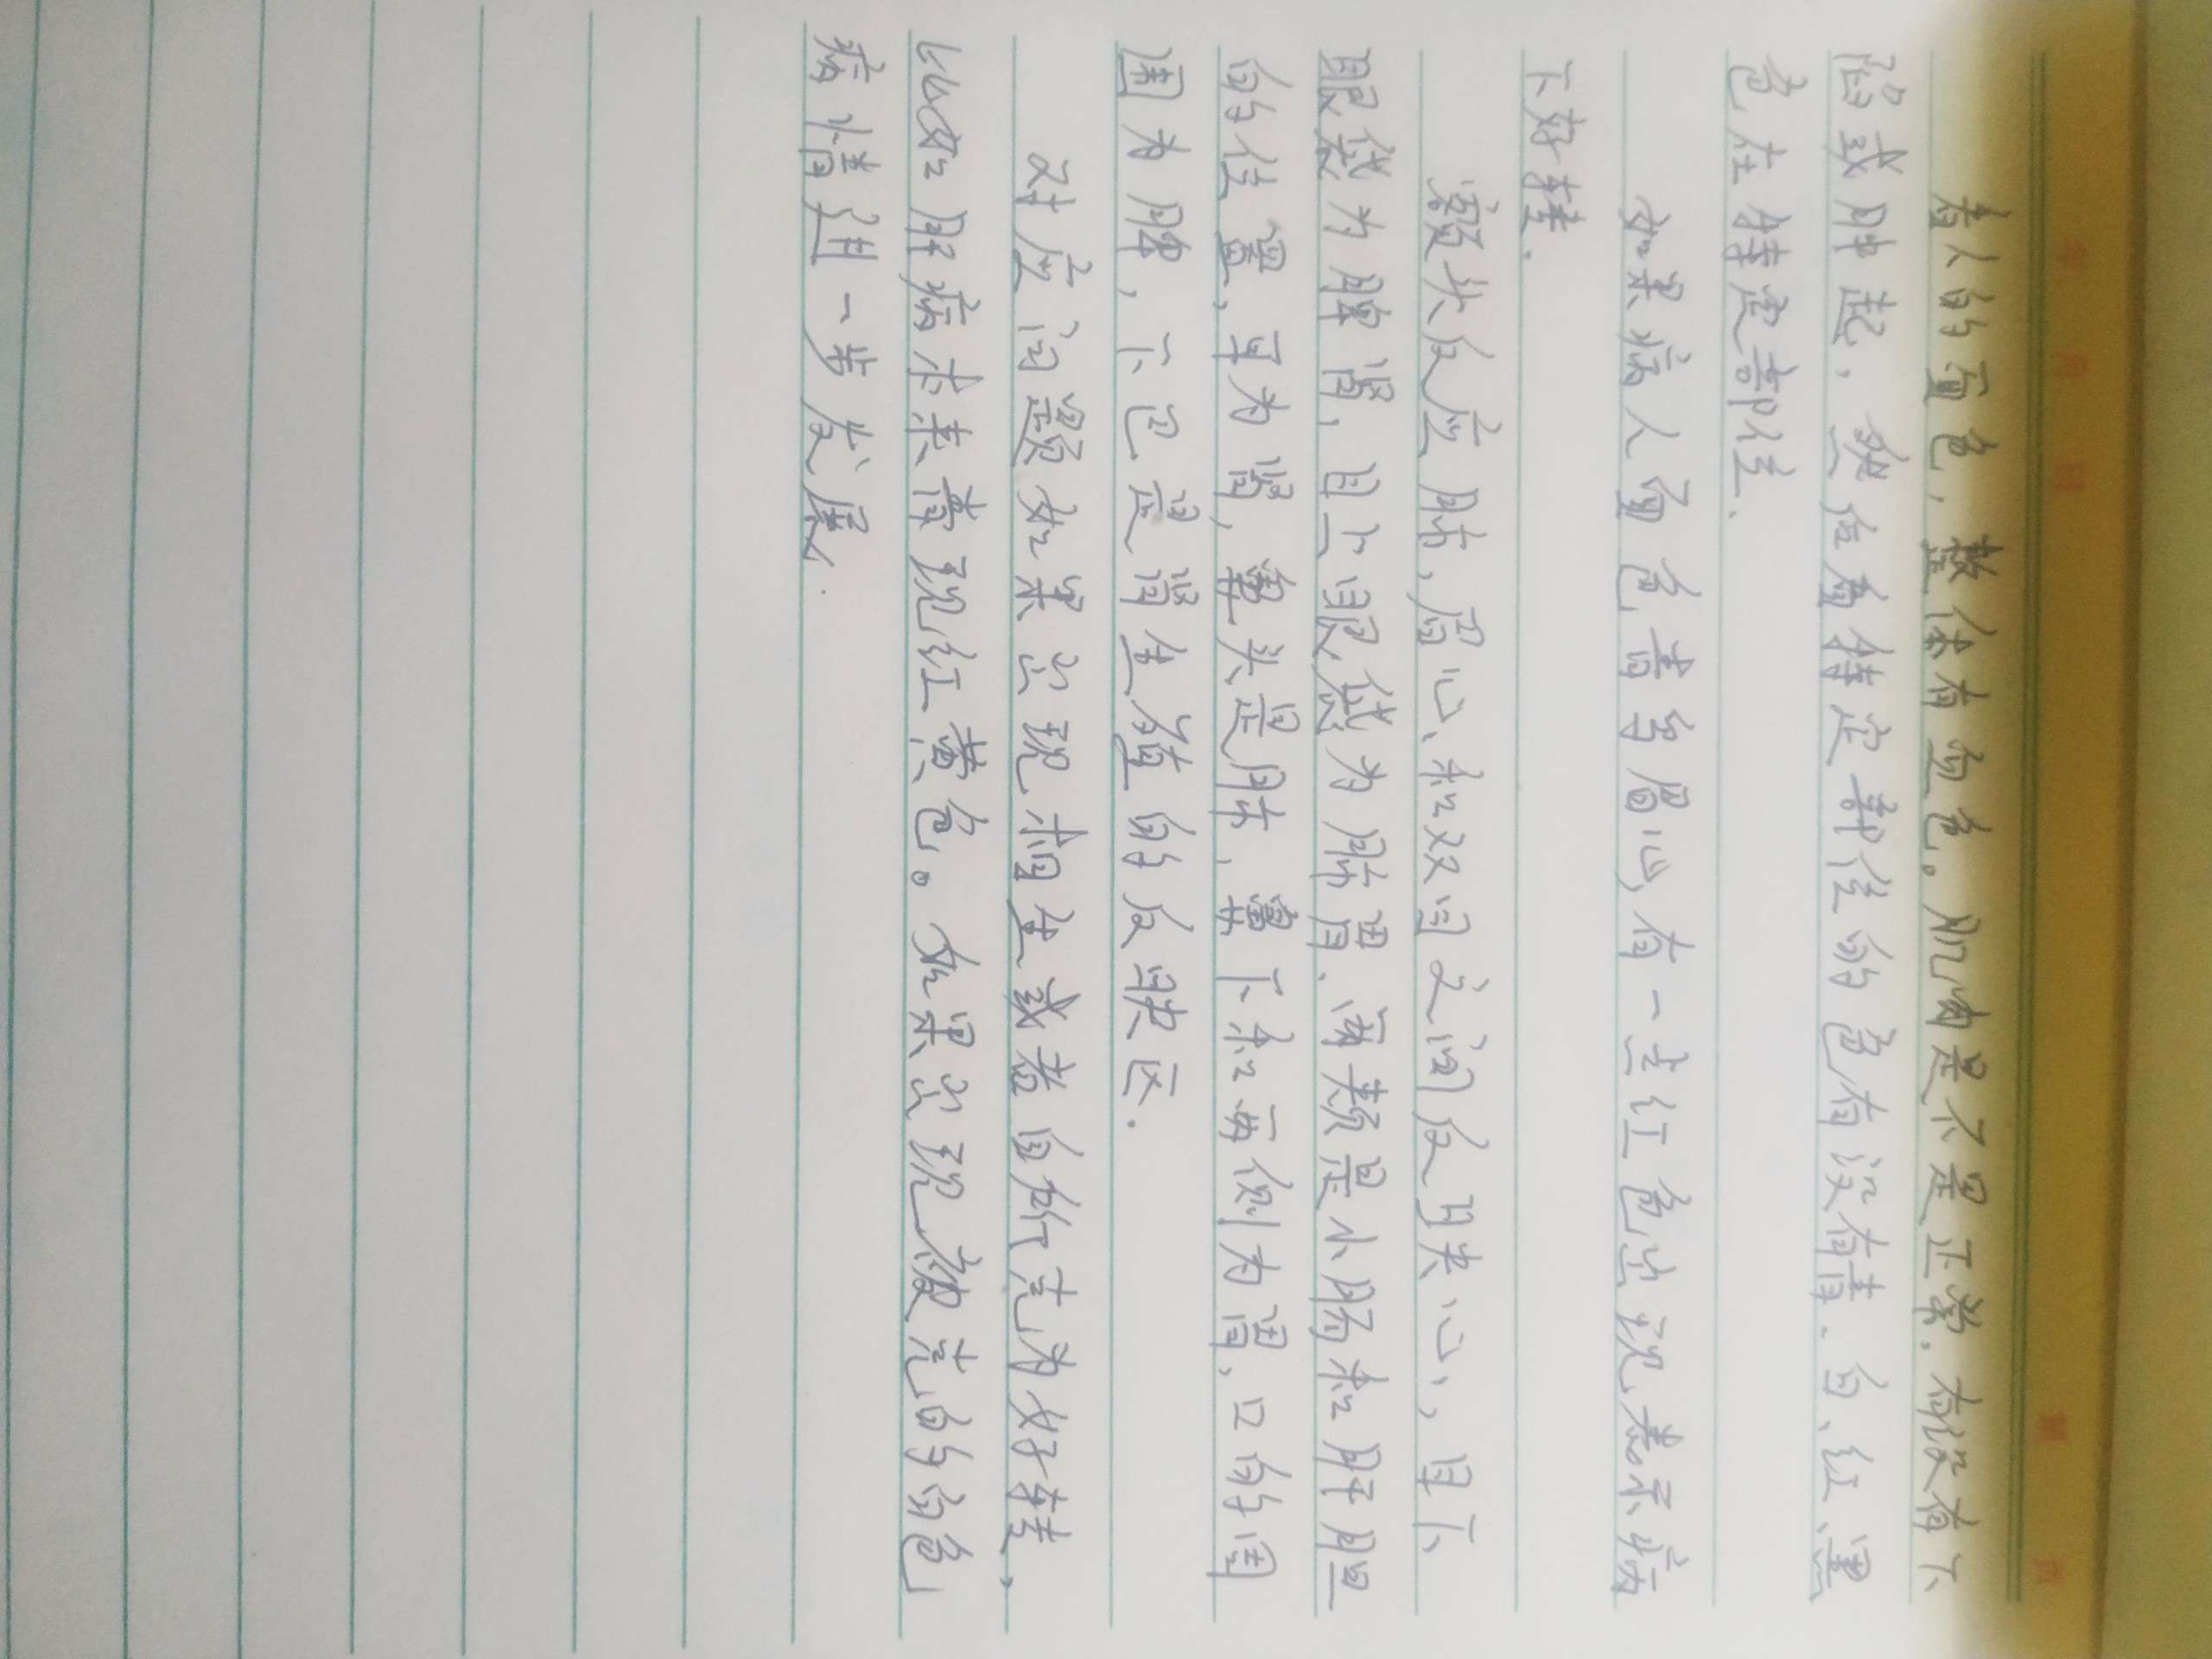 年 月 日 第 页
看人的面色，整体有血色。肌肉是不是正常.有没有下
陷或肿起，然后看特定部位的色有没有青.白、红、黑
色在特定部位、
如果病人面色青与眉心有一点红色出现表示病
下好转.
额头反应肺，眉心和双目之间反映心，目下
眼袋为脾胃，目上眼袋为肺胃、两颊是小肠和肝胆
的位置，耳为肾，鼻头是脾，鼻下和两侧为胃，口的周
围为脾，下巴是肾生殖的反映区.
对应问题如果出现相生或者自所克为好转，
比如肝病本来青现红黄色。如果出现被克的白色
病情进一步发展.